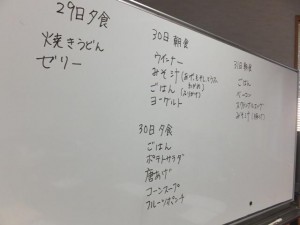 29日夕食
焼きうどん
ゼリー
30日 朝食
ウインナー
みそ汁
ごはん (ふりかけ)
ヨーグルト
30日 夕食
ごはん
ポテトサラダ
唐あげ
コーンスープ
フルーツポンチ
31日 朝食
ごはん
ベーコン
みそ汁